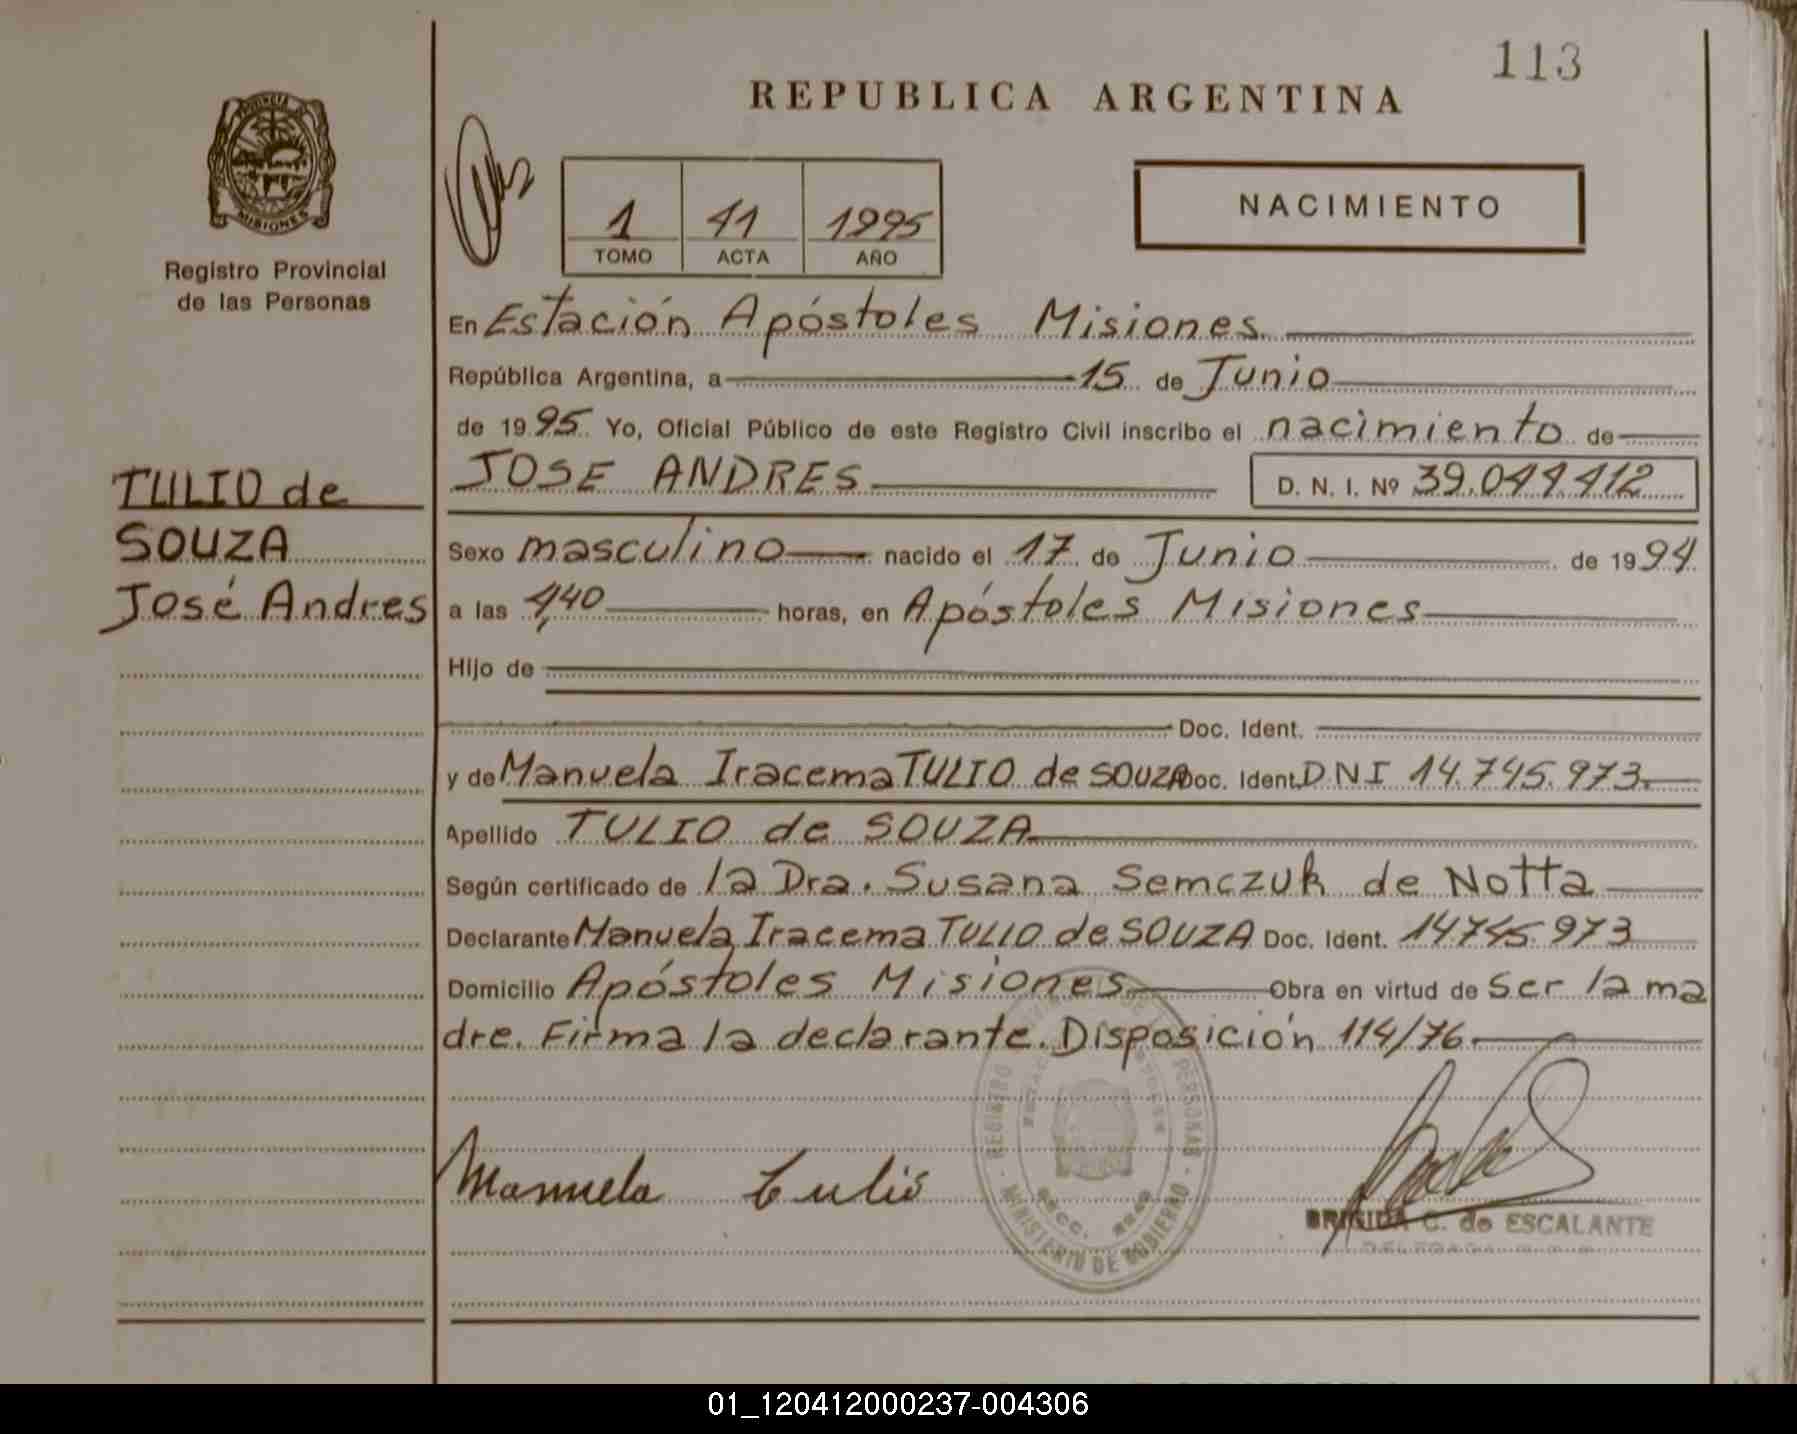 113
REPUBLICA ARGENTINA
PROVINCIA
MISIONES
Registro Provincial
de las Personas
1 41 1995
TOMO ACTA AÑO
NACIMIENTO
En Estación Apóstoles Misiones
República Argentina, a 15 de Junio
de 1995 Yo, Oficial Público de este Registro Civil inscribo el nacimiento de
JOSE ANDRES D. N. I. Nº 39.044.412
TULIO de
SOUZA
José Andres
Sexo masculino nacido el 17 de Junio de 1994
a las 4,40 horas, en Apóstoles Misiones
Hijo de
Doc. Ident.
y de Manuela Iracema TULIO de SOUZA Doc. Ident. DNI 14.745.973
Apellido TULIO de SOUZA
Según certificado de la Dra. Susana Semczuk de Notta
Declarante Manuela Iracema TULIO de SOUZA Doc. Ident. 14745.973
Domicilio Apóstoles Misiones Obra en virtud de ser la ma
dre. Firma la declarante. Disposición 114/76
Manuela Tulio
REGISTRO PERSONAS
MINISTERIO DE GOBIERNO
BRIGIDA C. de ESCALANTE
01_120412000237-004306